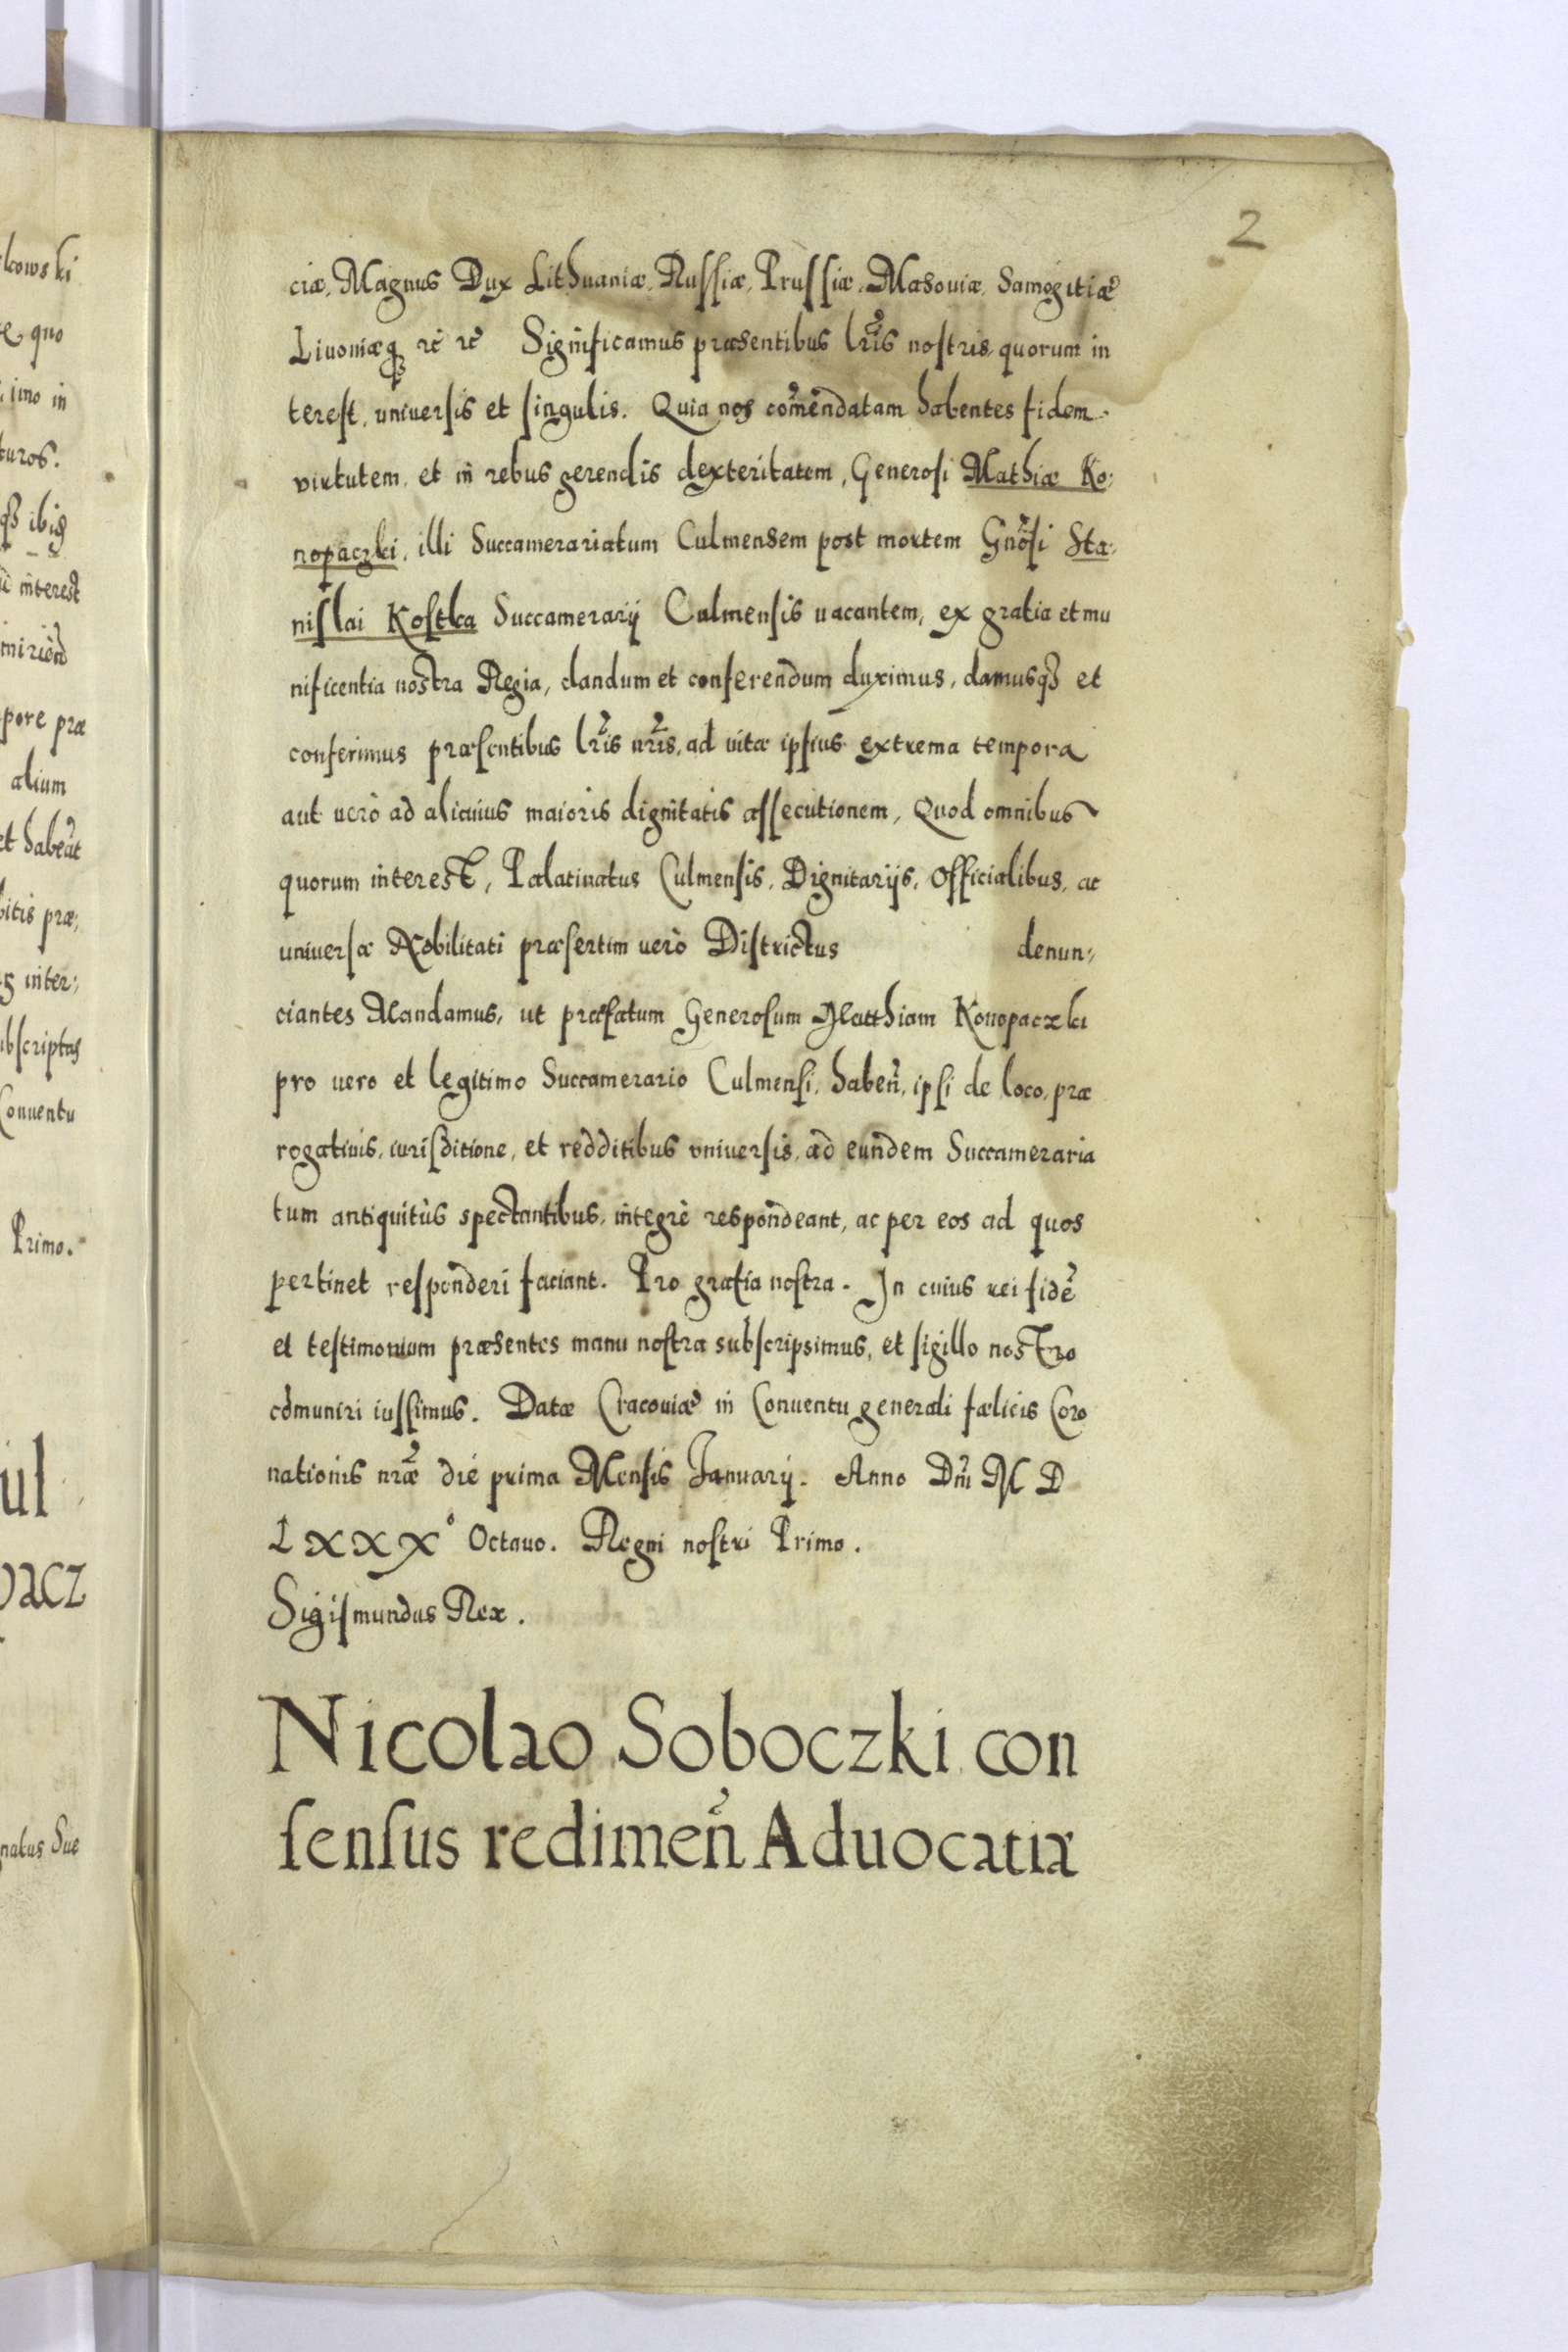 2
ciæ, Magnus Dux Lithuaniæ, Russiæ, Prussiæ, Masouiæ, Samogitiæ
Liuoniæq₃ ꝛc̃ ꝛc̃ Significamus præsentibus lr̃is nostris, quorum in
terest, uniuersis et singulis. Quia nos com̃endatam habentes fidem
virtutem, et in rebus gerendis dexteritatem, Generosi Mathiæ Ko:
nopaczki, illi Succamerariatum Culmensem post mortem Gnõsi Sta:
nislai Kostka Succamerarij Culmensis uacantem, ex gratia et mu
nificentia nostra Regia, dandum et conferendum duximus, damusq₃ et
conferimus præsentibus lr̃is nr̃is, ad uitæ ipsius extrema tempora
aut uerò ad alicuius maioris dignitatis assecutionem, Quod omnibus
quorum interest, Palatinatus Culmensis, Dignitarijs, Officialibus, ac
uniuersæ Nobilitati præsertim uerò Districtus denun:
ciantes Mandamus, ut præfatum Generosum Matthiam Konopaczki
pro uero et legitimo Succamerario Culmensi, haben̄, ipsi de loco, præ
rogatiuis, iurisditione, et redditibus vniuersis, ad eundem Succameraria
tum antiquitùs spectantibus, integrè respondeant, ac per eos ad quos
pertinet responderi faciant. Pro gratia nostra. In cuius rei fidẽ
et testimonium præsentes manu nostra subscripsimus, et sigillo nostro
cõmuniri iussimus. Datæ Cracouiæ in Conuentu generali fælicis Coro
nationis nr̃æ die prima Mensis Januarij. Anno Dn̄i M D
LXXX° Octauo. Regni nostri Primo.
Sigismundus Rex.
Nicolao Soboczki con
sensus redimen̄ Aduocatiæ